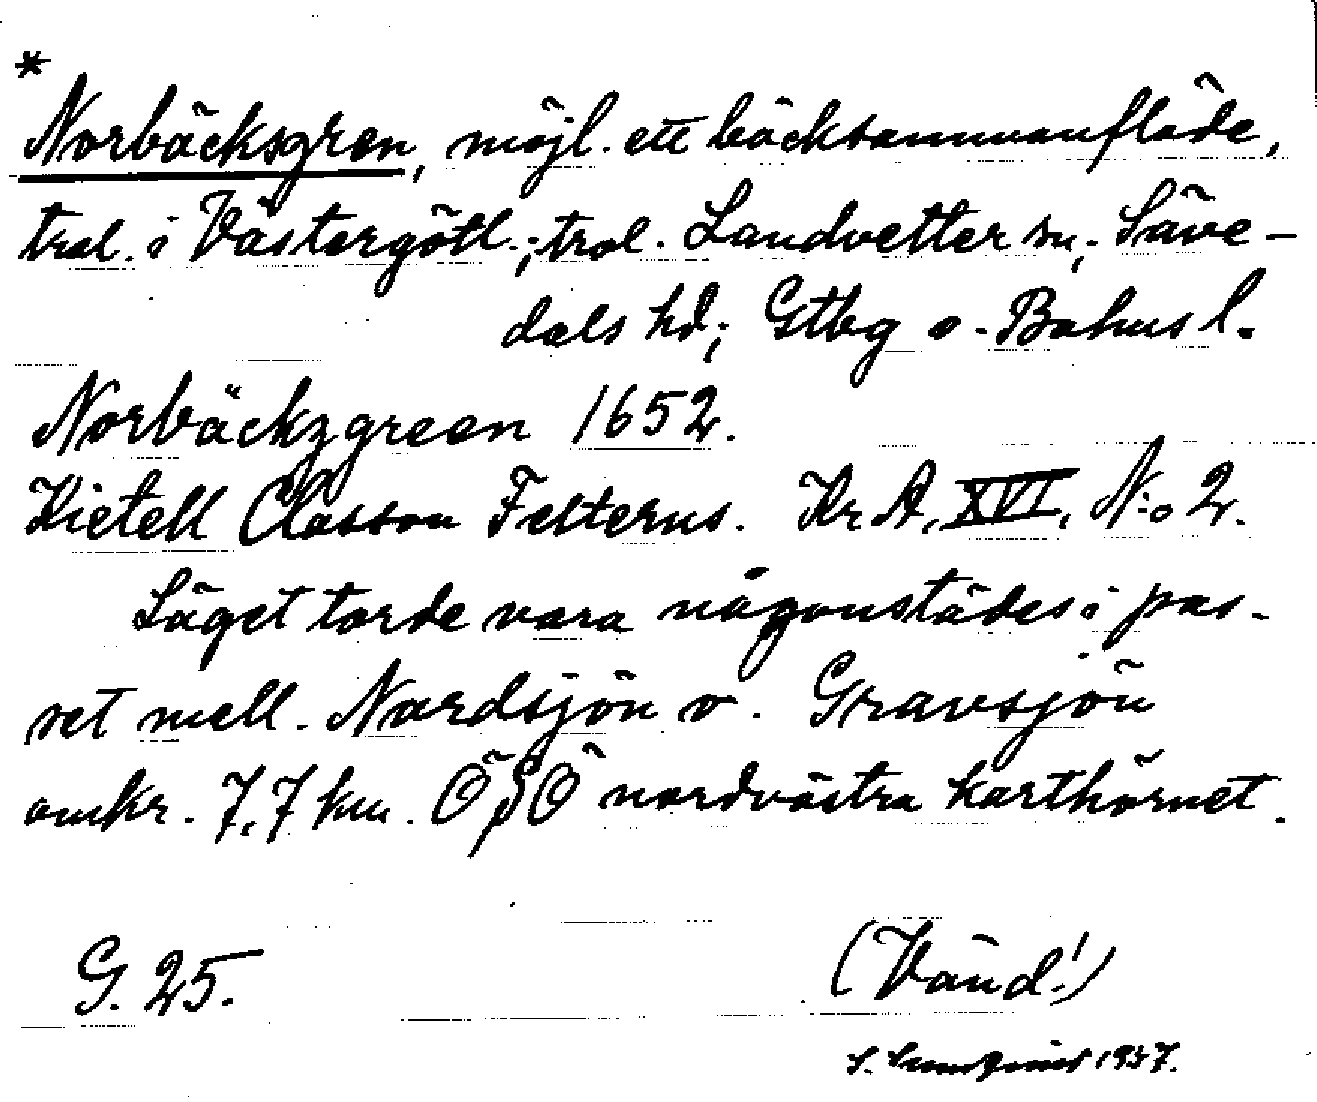 *
Norbäcksgren, möjl. ett bäcksammanflöde,
trol. i Västergötl.; trol. Landvetter sn; Säve-
dals hd; Gtbg o. Bohus l.
Norbäckzgreen 1652.
Kietell Classon Felterus. Kr A, XVI, N:o 2.
Läget torde vara någonstädes i pas-
set mell. Nordsjön o. Gravsjön
omkr. 7,7 km. ÖSÖ nordvästra karthörnet.
G. 25.
(Vänd!)
S. 1937.